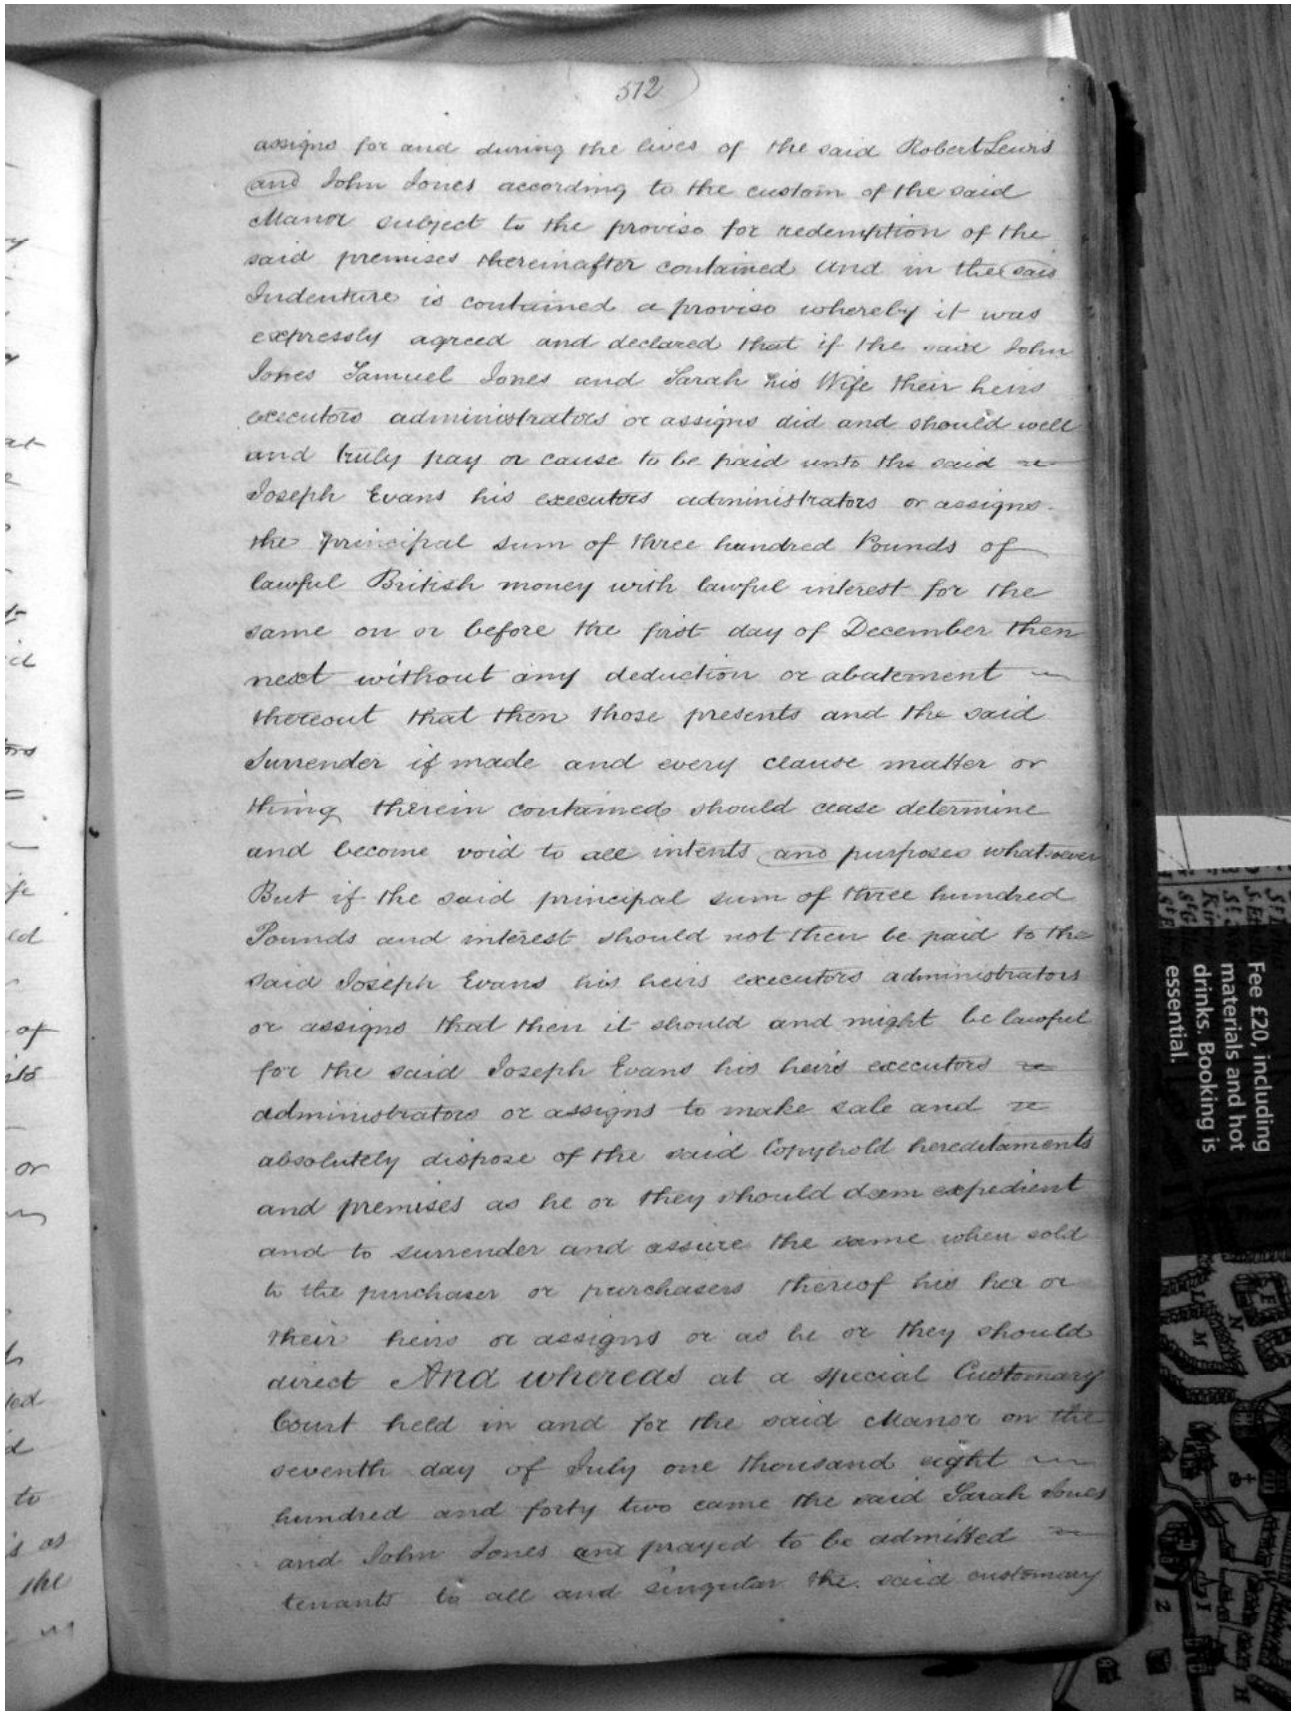 512
assigns for and during the lives of the said Robert Lewis
and John Jones according to the custom of the said
Manor subject to the proviso for redemption of the
said premises thereinafter contained And in the said
Indenture is contained a proviso whereby it was
expressly agreed and declared that if the said John
Jones Samuel Jones and Sarah his Wife their heirs
executors administrators or assigns did and should well
and truly pay or cause to be paid unto the said
Joseph Evans his executors administrators or assigns
the principal sum of three hundred Pounds of
lawful British money with lawful interest for the
same on or before the first day of December then
next without any deduction or abatement
thereout that then those presents and the said
Surrender if made and every clause matter or
thing therein contained should cease determine
and become void to all intents and purposes whatsoever
But if the said principal sum of three hundred
Pounds and interest should not then be paid to the
said Joseph Evans his heirs executors administrators
or assigns that then it should and might be lawful
for the said Joseph Evans his heirs executors
administrators or assigns to make sale and
absolutely dispose of the said Copyhold hereditaments
and premises as he or they should deem expedient
and to surrender and assure the same when sold
to the purchaser or purchasers thereof his her or
their heirs or assigns or as he or they should
direct And whereas at a special Customary
Court held in and for the said Manor on the
seventh day of July one thousand eight
hundred and forty two came the said Sarah Jones
and John Jones and prayed to be admitted
tenants to all and singular the said customary
at
of
or
to
as
the
Fee £20, including
materials and hot
drinks. Booking is
essential.